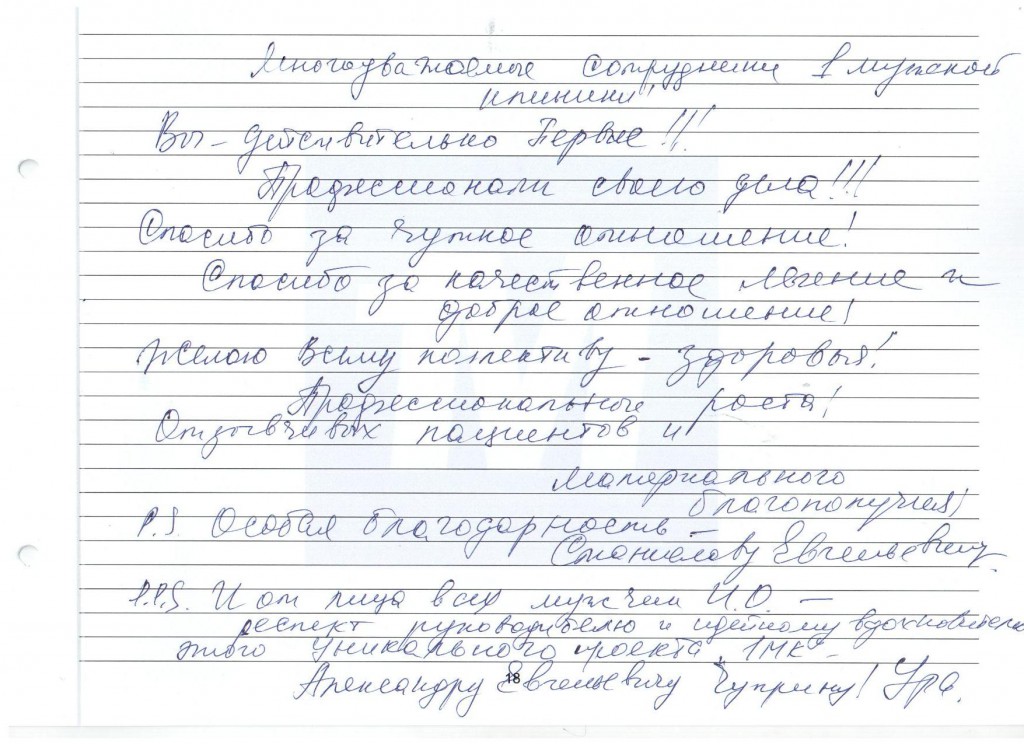 Многоуважаемые сотрудники 1 мужской
клиники!
Вы - действительно Первые!!!
Професионали своего дела!!!
Спасибо за чуткое отношение!
Спасибо за качественное лечение и
доброе отношение!
Желаю Всему коллективу - здоровья!
Професиональные роста!
Отзывчивых пациентов и
Материального
благополучия!
P.S. Особая благодарность -
Станиславу Евгеньевичу
P.P.S. И от лица всех мужчин И.О. -
респект руководителю и идейному вдохновителю
этого уникального проекта "1МК" -
Александру Евгеньевичу Чуприну! Ура.
18